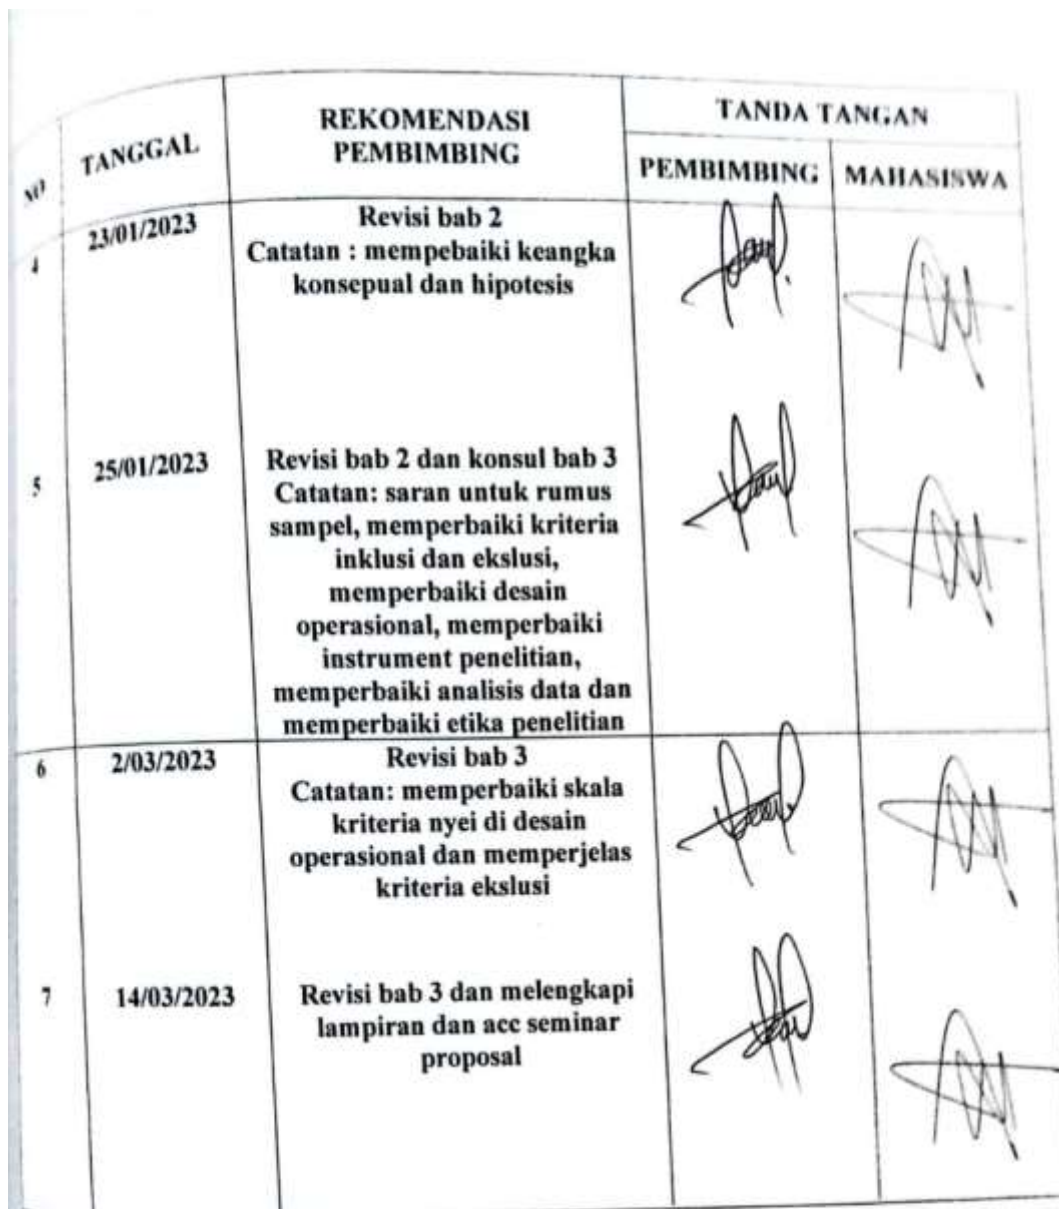 NO
TANGGAL
REKOMENDASI
PEMBIMBING
TANDA TANGAN
PEMBIMBING
MAHASISWA
4
23/01/2023
Revisi bab 2
Catatan : mempebaiki keangka
konsepual dan hipotesis
5
25/01/2023
Revisi bab 2 dan konsul bab 3
Catatan: saran untuk rumus
sampel, memperbaiki kriteria
inklusi dan ekslusi,
memperbaiki desain
operasional, memperbaiki
instrument penelitian,
memperbaiki analisis data dan
memperbaiki etika penelitian
6
2/03/2023
Revisi bab 3
Catatan: memperbaiki skala
kriteria nyei di desain
operasional dan memperjelas
kriteria ekslusi
7
14/03/2023
Revisi bab 3 dan melengkapi
lampiran dan acc seminar
proposal